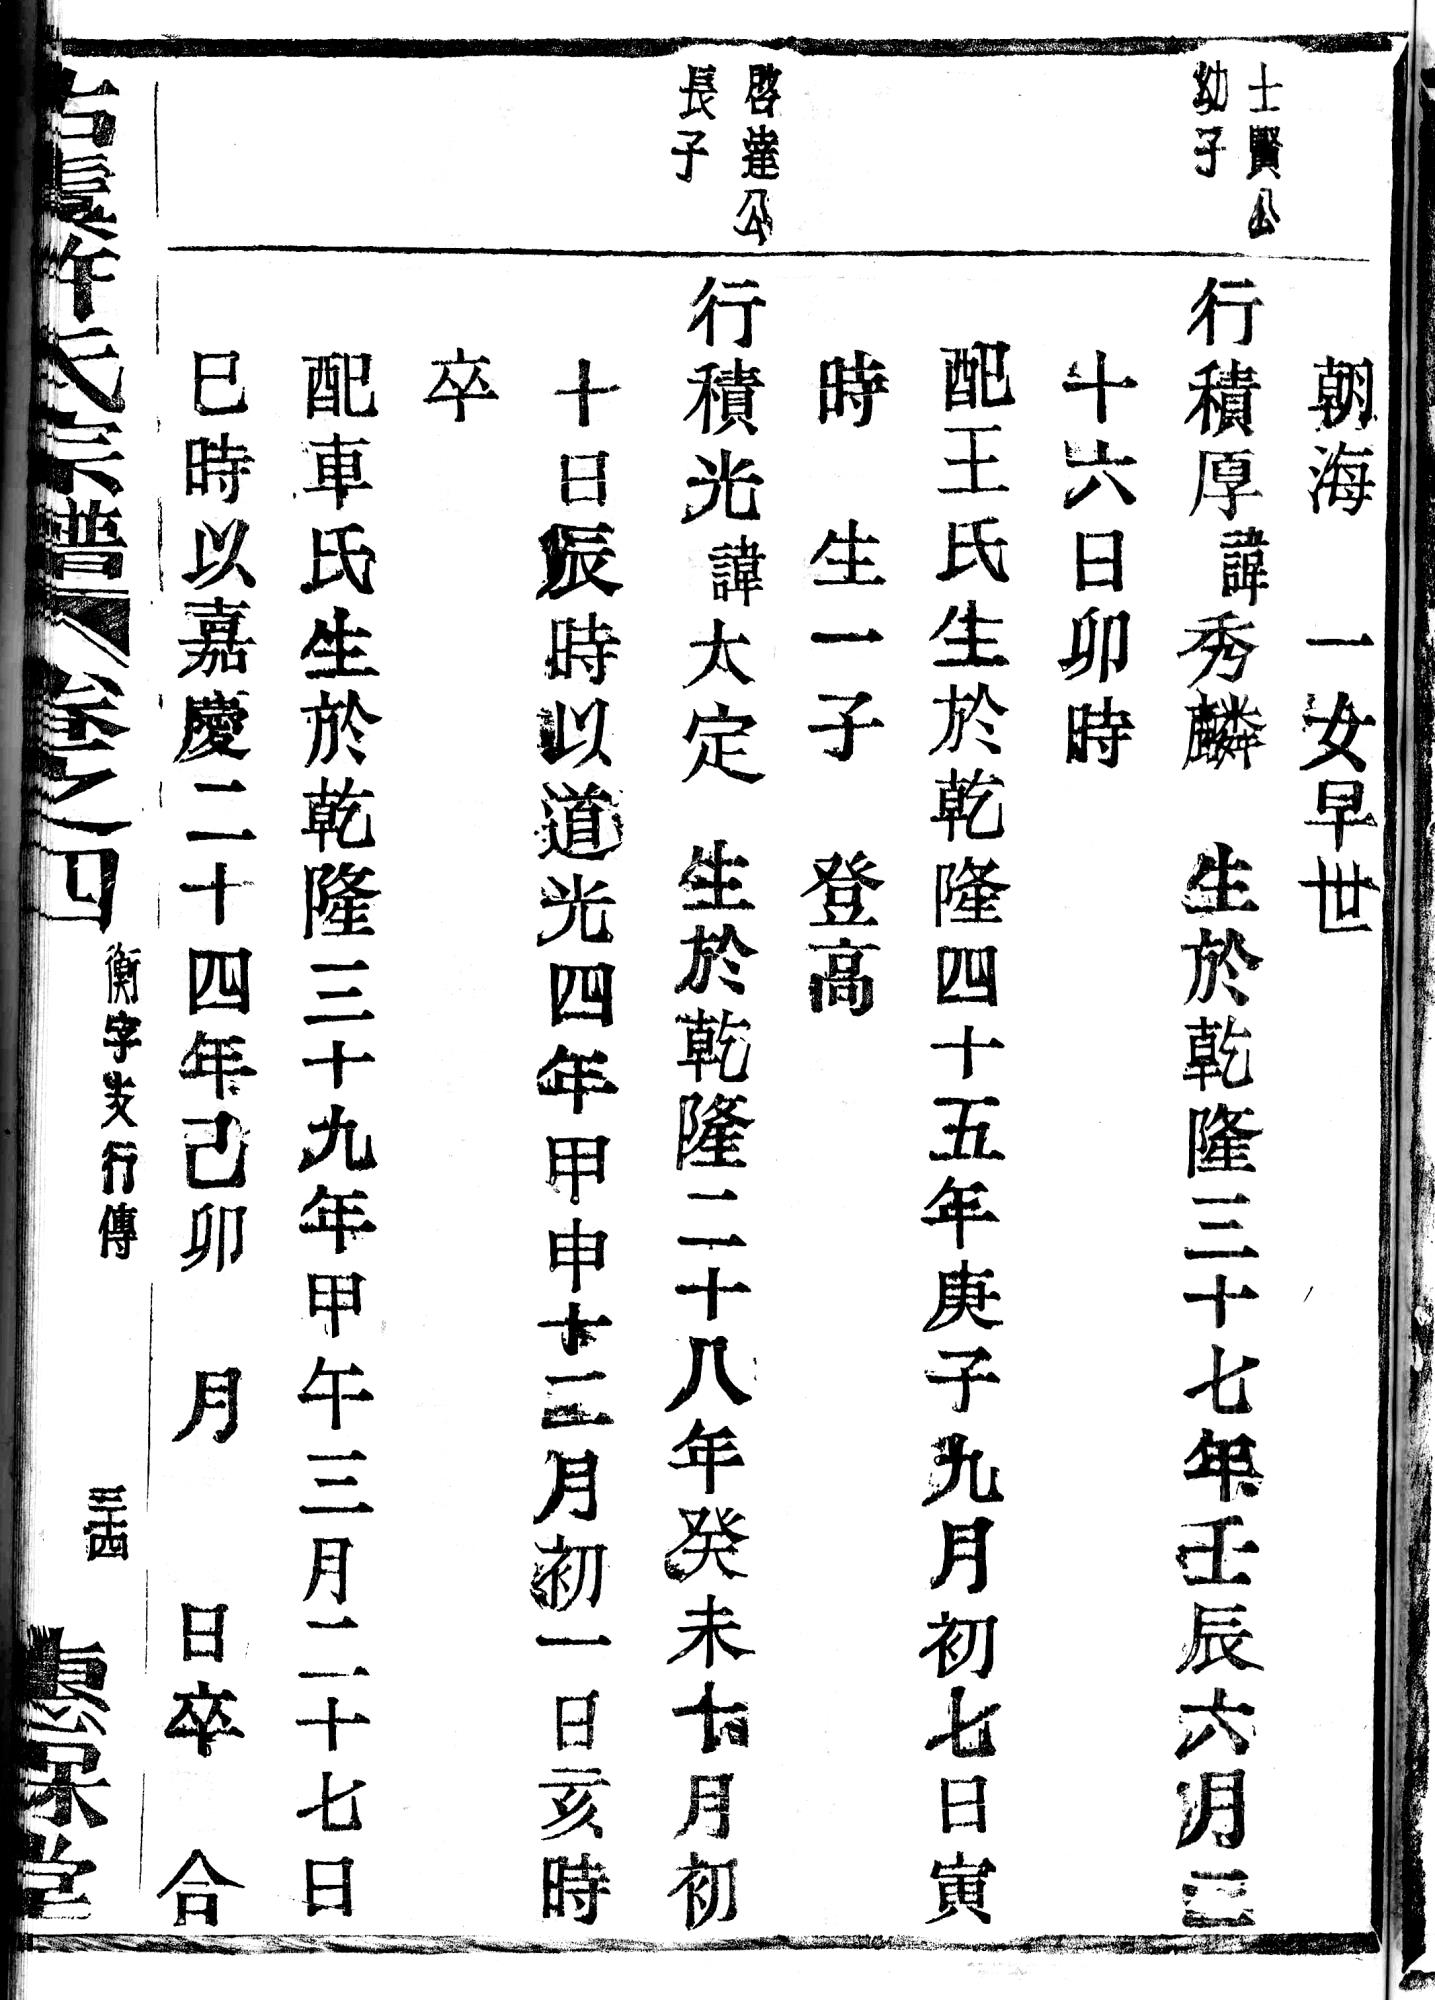 朝海　一女早世
士賢公
幼子
行積厚諱秀麟　生於乾隆三十七年壬辰六月二
十六日卯時
配王氏生於乾隆四十五年庚子九月初七日寅
時　生一子　登高
啓達公
長子
行積光諱太定　生於乾隆二十八年癸未十月初
十日辰時以道光四年甲申十二月初一日亥時
卒
配車氏生於乾隆三十九年甲午三月二十七日
巳時以嘉慶二十四年己卯　月　　日卒　合
古虞許氏宗譜　卷之四
衡字支行傳
三十四
堂